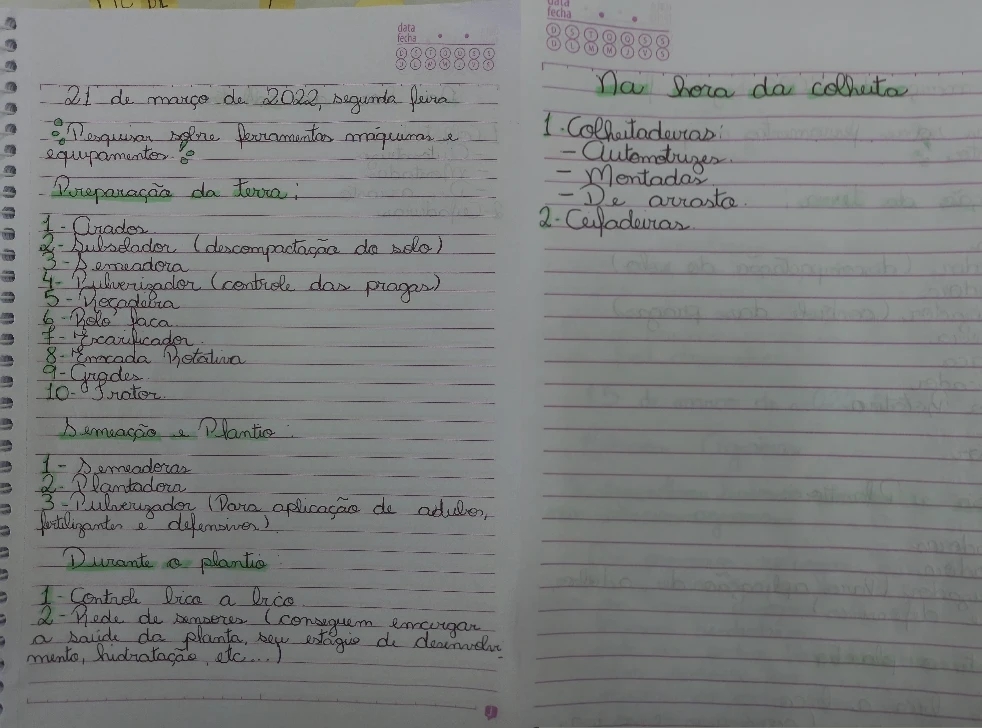 data
fecha
21 de março de 2022, segunda feira
Pesquisar sobre ferramentas máquinas e
equipamentos
Preparação da terra:
1 - Arados
2 - Subsolador (descompactação do solo)
3 - Semeadora
4 - Pulverizador (controle das pragas)
5 - Roçadeira
6 - Rolo faca
7 - Escarificador
8 - Enxada Rotativa
9 - Grades
10 - Trator
Semeação e Plantio
1 - Semeadoras
2 - Plantadora
3 - Pulverizador (Para aplicação de adubos,
fertilizantes e defensivos)
Durante o plantio
1 - Controle bico a bico
2 - Rede de sensores (conseguem enxergar
a saúde da planta, seu estágio de desenvolvi-
mento, hidratação, etc...)
data
fecha
D S T Q Q S S
D L M M J V S
Na hora da colheita
1. Colheitadeiras:
- Automotrizes
- Montadas
- De arrasto
2 - Ceifadeiras